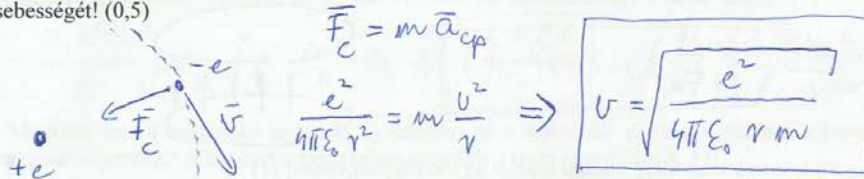 sebességét! (0,5)
F̄_c = m ā_cp
-e
F̄_c
v̄
+e
e²/(4πε₀ r²) = m v²/r ⇒ v = √(e²/(4πε₀ r m))